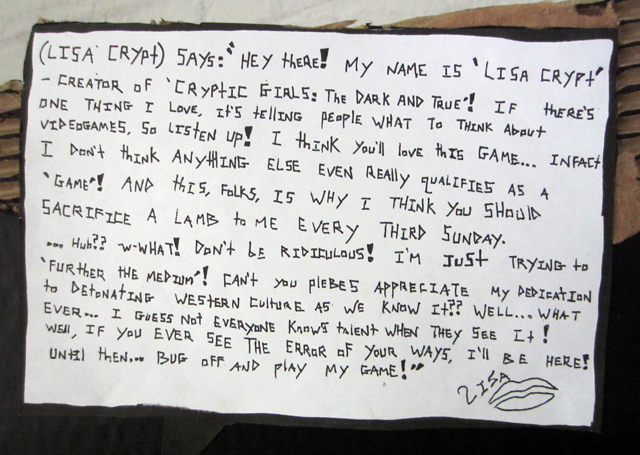 (LISA CRYPT) SAYS: "HEY THERE! MY NAME IS 'LISA CRYPT'
- CREATOR OF 'CRYPTIC GIRLS: THE DARK AND TRUE'! IF THERE'S
ONE THING I LOVE, IT'S TELLING PEOPLE WHAT TO THINK ABOUT
VIDEOGAMES, SO LISTEN UP! I THINK YOU'LL LOVE THIS GAME... INFACT
I DON'T THINK ANYTHING ELSE EVEN REALLY QUALIFIES AS A
'GAME'! AND THIS, FOLKS, IS WHY I THINK YOU SHOULD
SACRIFICE A LAMB TO ME EVERY THIRD SUNDAY.
... HUH?? W-WHAT! DON'T BE RIDICULOUS! I'M JUST TRYING TO
'FURTHER THE MEDIUM'! CAN'T YOU PLEBES APPRECIATE MY DEDICATION
TO DETONATING WESTERN CULTURE AS WE KNOW IT?? WELL... WHAT
EVER... I GUESS NOT EVERYONE KNOWS TALENT WHEN THEY SEE IT!
WELL, IF YOU EVER SEE THE ERROR OF YOUR WAYS, I'LL BE HERE!
UNTIL THEN... BUG OFF AND PLAY MY GAME!"
LISA